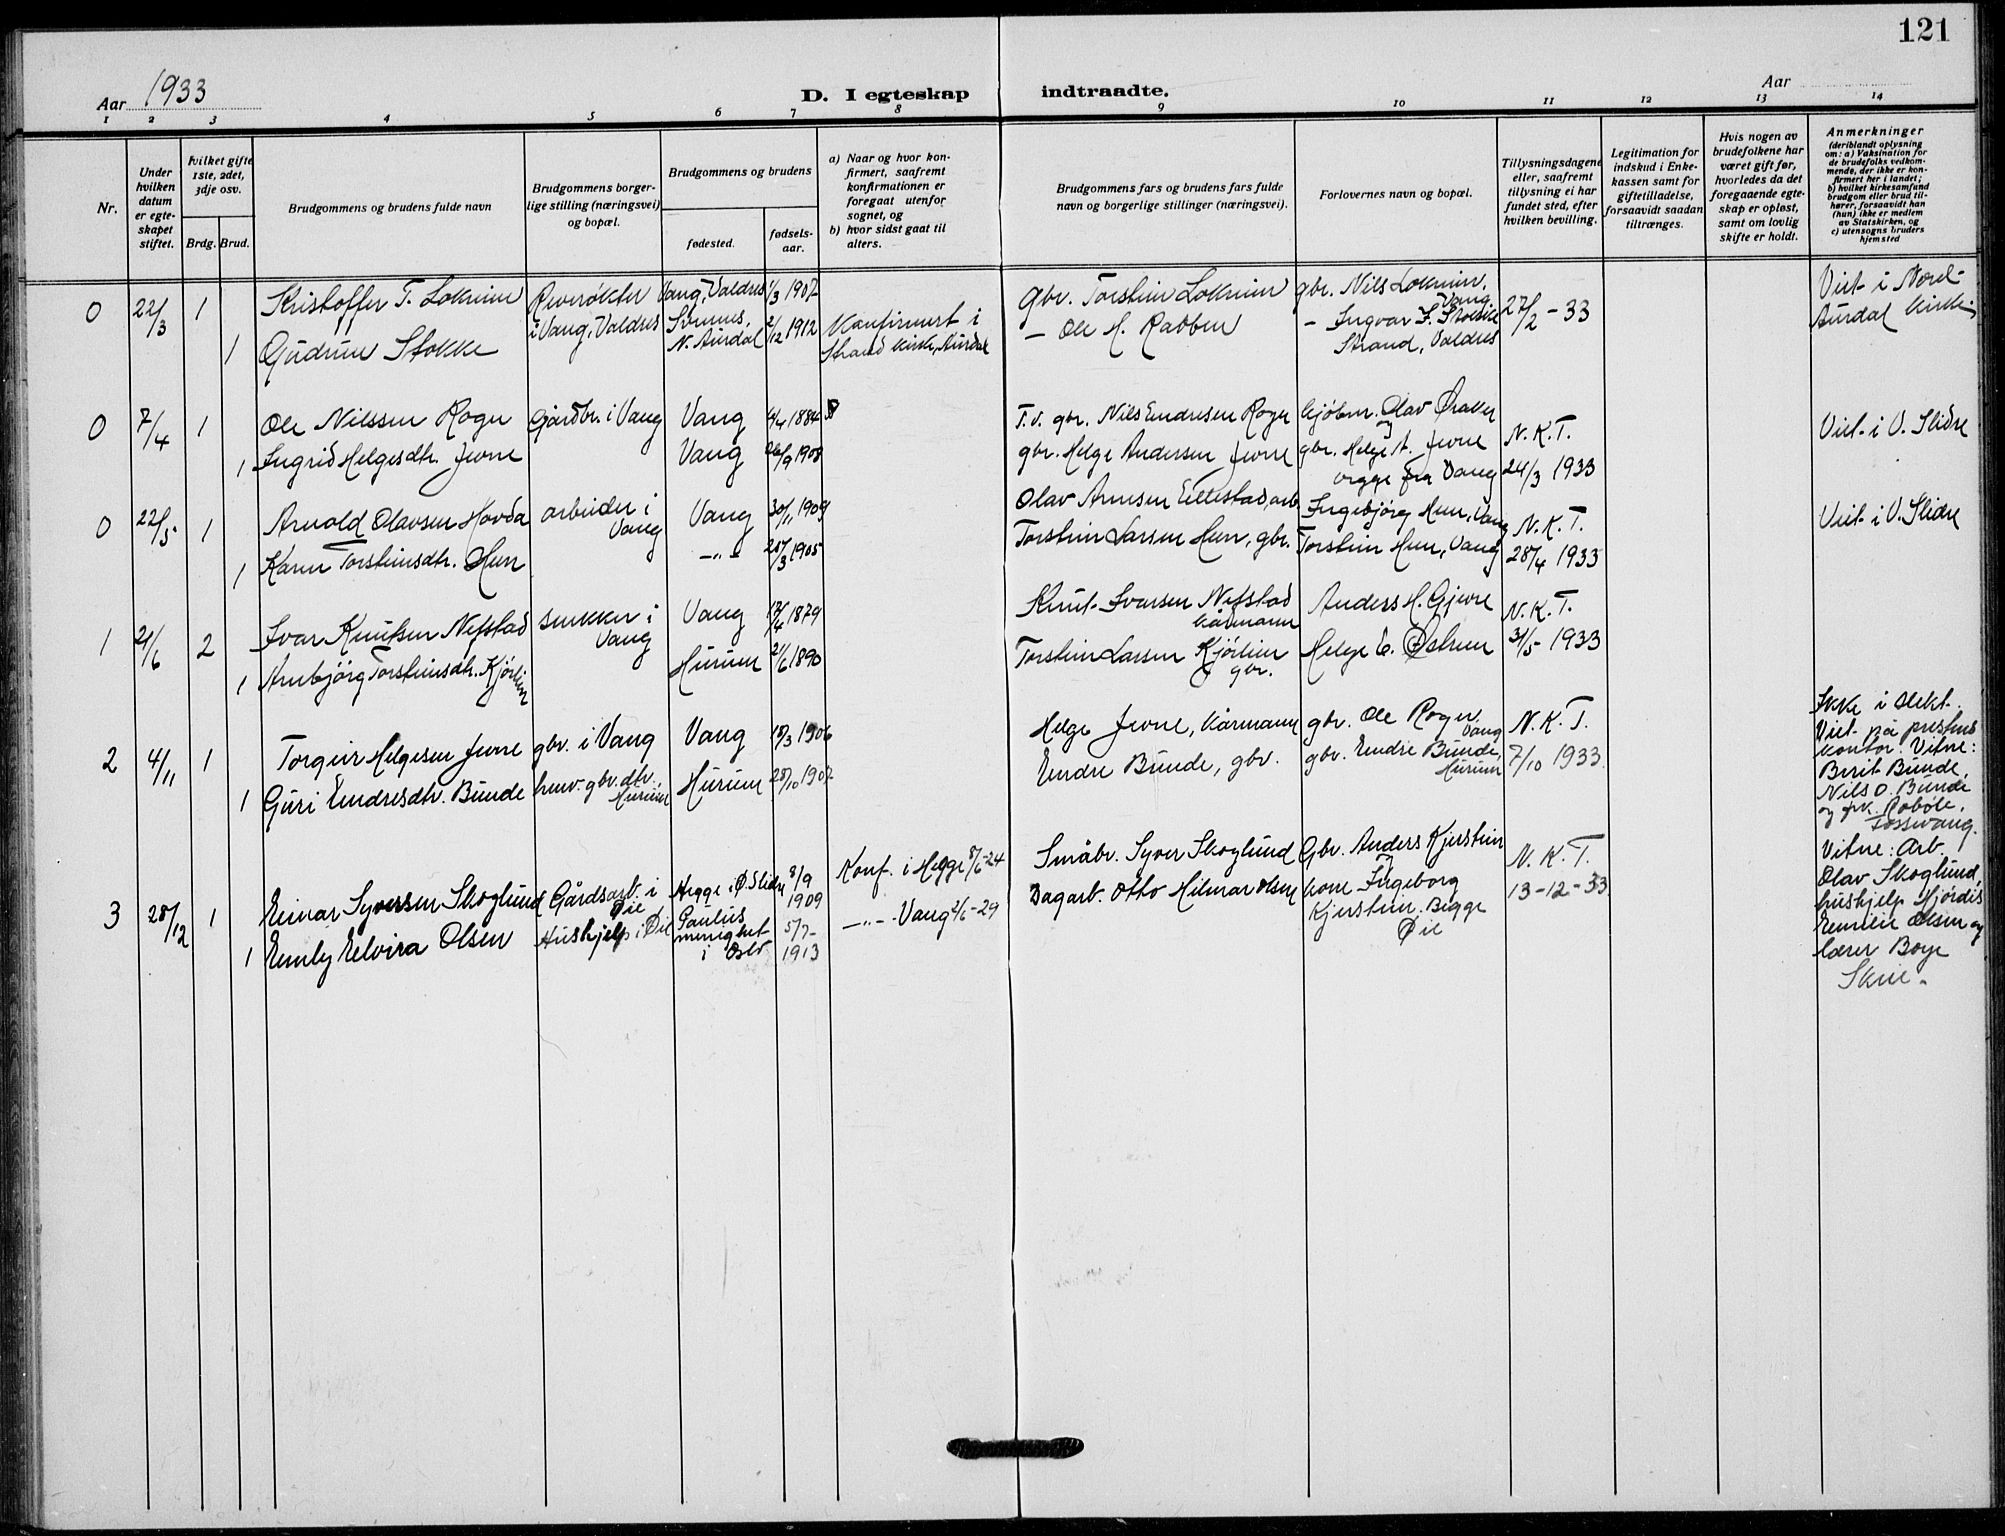 121
Aar 1933
D. I egteskap indtraadte.
Aar
1 2 3 4 5 6 7 8 9 10 11 12 13 14
Nr.
Under hvilken datum er egteskapet stiftet.
hvilket gifte 1ste, 2det, 3dje osv.
Brdg. Brud.
Brudgommens og brudens fulde navn
Brudgommens borgerlige stilling (næringsvei) og bopæl.
Brudgommens og brudens
fødested.
fødselsaar.
a) Naar og hvor konfirmert, saafremt konfirmationen er foregaat utenfor sognet, og
b) hvor sidst gaat til alters.
Brudgommens fars og brudens fars fulde navn og borgerlige stillinger (næringsvei).
Forlovernes navn og bopæl.
Tillysningsdagene eller, saafremt tillysning ei har fundet sted, efter hvilken bevilling.
Legitimation for indskud i Enkekassen samt for giftetilladelse, forsaavidt saadan tiltrænges.
Hvis nogen av brudefolkene har været gift før, hvorledes da det foregaaende egteskap er opløst, samt om lovlig skifte er holdt.
Anmerkninger
(deriblandt oplysning om: a) Vaksination for de brudefolks vedkommende, der ikke er konfirmert her i landet; b) hvilket kirkesamfund brudgom eller brud tilhører, forsaavidt han (hun) ikke er medlem av Statskirken, og c) utensogns bruders hjemsted
0 22/3 1 Kristoffer T. Lokrein Reverøkter Vang, Valdres 1/3 1907
1 Gudrun Stokke i Vang, Valdres Svennes, N. Aurdal 2/12 1912 Konfirmert i Strand kirke, Aurdal
Gbr. Torstein Lokrein gbr. Nils Lokrein, Vang 27/2-33 Viet i Nord-Aurdal kirke
- Ole H. Rabben - Ingvar Strand, Valdres
0 7/4 1 Ole Nilssen Rogn Gårdbr. i Vang Vang 4/4 1884
1 Ingrid Helgesdtr. Jevne Vang 26/9 1908
F.v. gbr. Nils Endresen Rogn kjøbm. Olav Øraker og N.K.T. Viet i V. Slidre
gbr. Helge Andersen Jevne gbr. Helge A. Jevne begge fra Vang 24/3 1933
0 22/5 1 Arnold Olavsen Hovda arbeider i Vang Vang 30/1 1909
1 Karen Torsteinsdtr. Hen -"- 28/3 1905
Olav Arnesen Ellestad, arb. Ingebjørg Hen, Vang N.K.T. Viet i V. Slidre
Torstein Larsen Hen, gbr. Torstein Hen, Vang 28/4 1933
1 21/6 2 Ivar Knutsen Nefstad snekker i Vang Vang 12/4 1879
1 Arnbjørg Torsteinsdtr. Kjørlien Hurum 2/6 1890
Knut Ivarsen Nefstad kårmann Anders H. Gjevre N.K.T.
Torstein Larsen Kjørlien gbr. Helge E. Østrem 31/5 1933
2 4/11 1 Torgeir Helgesen Jevne gbr. i Vang Vang 18/3 1906
1 Guri Endresdtr. Bunde hmv. gbr.dtr. Hurum Hurum 28/10 1907
Helge Jevne, kårmann gbr. Ole Rogn Vang N.K.T.
Endre Bunde, gbr. gbr. Endre Bunde, Hurum 7/10 1933
Ikke i slekt.
Viet på prestens
kontor. Vitne:
Berit Bunde,
Nils O. Bunde
og frk. Robøle,
Fossevang.
3 28/12 1 Einar Syversen Skoglund Gårdsarb. i Øie Hegge i Ø. Slidre 8/9 1909 Konf. i Hegge 8/6-24
1 Emly Elvira Olsen Hushjelp i Øie Paulus menighet i Oslo 5/7-1913 -"- Vang 2/6-29
Småbr. Syver Skoglund Gbr. Anders Kjerstein og N.K.T.
Dagarb. Otto Hilmar Olsen kone Ingeborg Kjerstein. Begge Øie 13-12-33
Vitne: Arb.
Olav Skoglund,
hushjelp Hjørdis
Emilie Olsen og
lærer Boye
Skrie.